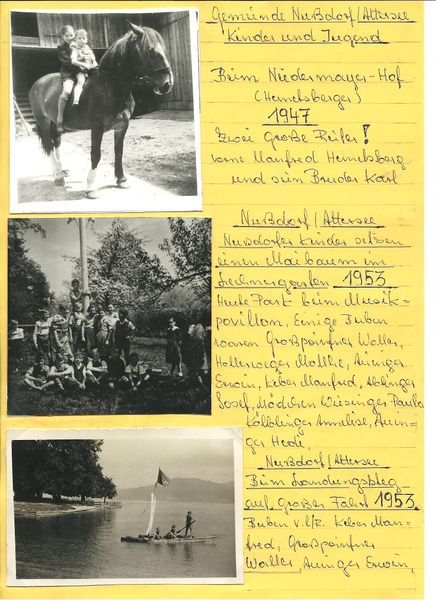 Gemeinde Nußdorf/Attersee
Kinder und Jugend
Beim Niedermayer-Hof
(Hemelsberger)
1947
Zwei Große Reiter!
vorne Manfred Hemelsberg
und sein Bruder Karl
Nußdorf/Attersee
Nußdorfer Kinder setzen
einen Maibaum im
1953
Heute Park beim Musik-
povillon, Einige Buben
waren Großpointner Walter,
Hollerweger Aninger
Erwin, Keber Manfred, Ablinger
Josef, Mädchen Wiesinger Paula
Kölblinger Annelise, Anin-
ger Hede.
Nußdorf/Attersee
Beim Landungssteg
auf Großer Fahrt 1953
Buben v.l/R. Keber Man-
fred, Großpointner
Walter, Aninger Erwin,